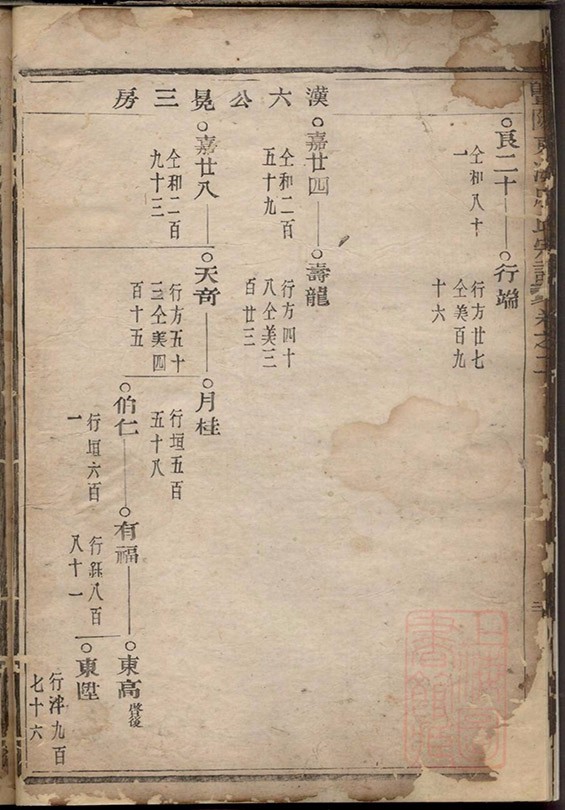 良二十
仝和八十
一
行端
行方廿七
仝美百九
十六
漢六公晃三房
嘉廿四
仝和二百
五十九
壽龍
行方四十
八仝美三
百廿三
嘉廿八
仝和二百
九十三
天奇
行方五十
三仝美四
百十五
月桂
行垣五百
五十八
伯仁
行垣六百
一
有福
行鉐八百
八十一
東高
啓後
東陞
行沣九百
七十六